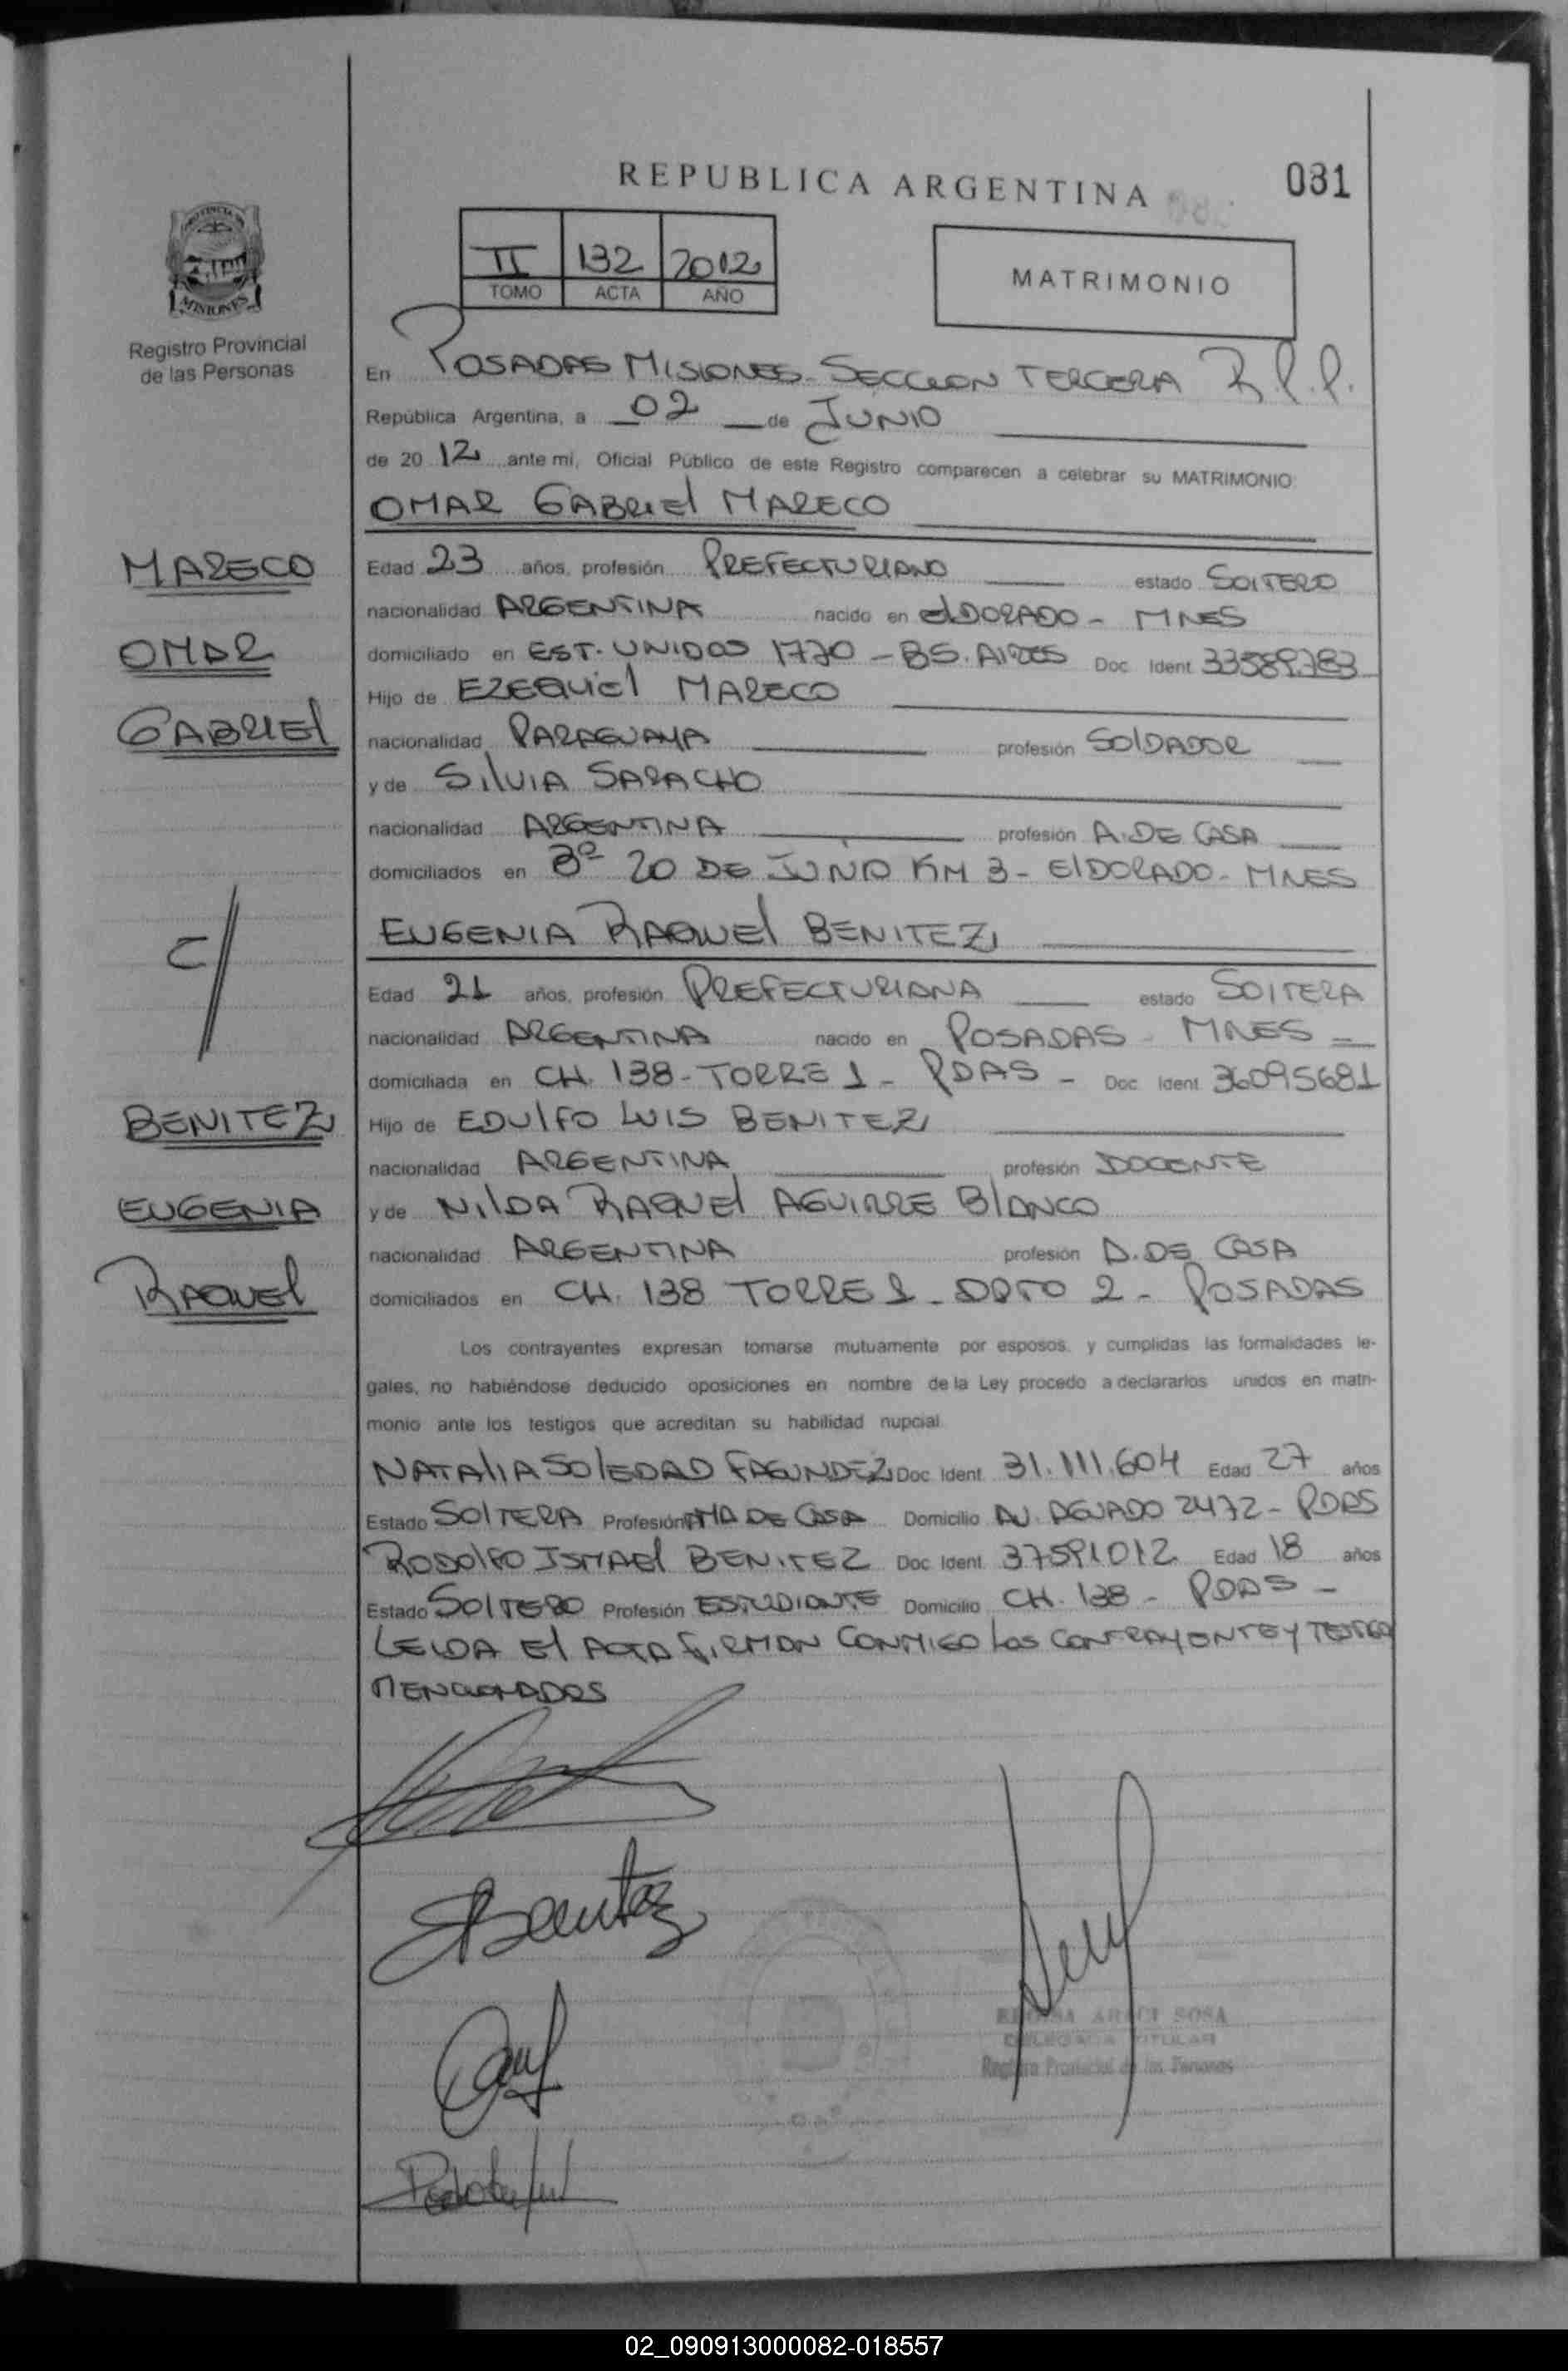 REPUBLICA ARGENTINA
081
II 132 2012
TOMO ACTA AÑO
MATRIMONIO
PROVINCIA DE
MISIONES
Registro Provincial
de las Personas
En POSADAS MISIONES - SECCION TERCERA R.P.P.
República Argentina, a 02 de JUNIO
de 20 12 ante mi, Oficial Público de este Registro comparecen a celebrar su MATRIMONIO:
OMAR GABRIEL MARECO
MARECO
OMAR
GABRIEL
Edad 23 años, profesión PREFECTURIANO estado SOLTERO
nacionalidad ARGENTINA nacido en ELDORADO - MNES
domiciliado en EST. UNIDOS 1770 - BS. AIRES Doc. Ident. 33589.783
Hijo de EZEQUIEL MARECO
nacionalidad PARAGUAYA profesión SOLDADOR
y de SILVIA SARACHO
nacionalidad ARGENTINA profesión A. DE CASA
domiciliados en Bº 20 DE JUNIO KM 3 - ELDORADO - MNES
C/
EUGENIA RAQUEL BENITEZ
Edad 21 años, profesión PREFECTURIANA estado SOLTERA
nacionalidad ARGENTINA nacido en POSADAS - MNES
domiciliada en CH. 138 - TORRE 1 - PDAS - Doc. Ident. 36095681
BENITEZ
EUGENIA
RAQUEL
Hijo de EDULFO LUIS BENITEZ
nacionalidad ARGENTINA profesión DOCENTE
y de NILDA RAQUEL AGUIRRE BLANCO
nacionalidad ARGENTINA profesión A. DE CASA
domiciliados en CH. 138 TORRE 1 - DPTO 2 - POSADAS
Los contrayentes expresan tomarse mutuamente por esposos, y cumplidas las formalidades le-
gales, no habiéndose deducido oposiciones en nombre de la Ley procedo a declararlos unidos en matri-
monio ante los testigos que acreditan su habilidad nupcial.
NATALIA SOLEDAD FAGUNDEZ Doc. Ident. 31.111.604 Edad 27 años
Estado SOLTERA Profesión AMA DE CASA Domicilio AV. AGUADO 2472 - PDAS
RODOLFO ISMAEL BENITEZ Doc. Ident. 37591012 Edad 18 años
Estado SOLTERO Profesión ESTUDIANTE Domicilio CH. 138 - PDAS -
LEIDA EL ACTA FIRMAN CONMIGO LOS CONTRAYENTE Y TESTIGO
MENCIONADOS
Benitez
SOSA
TITULAR
Registro Provincial de las Personas
02_090913000082-018557